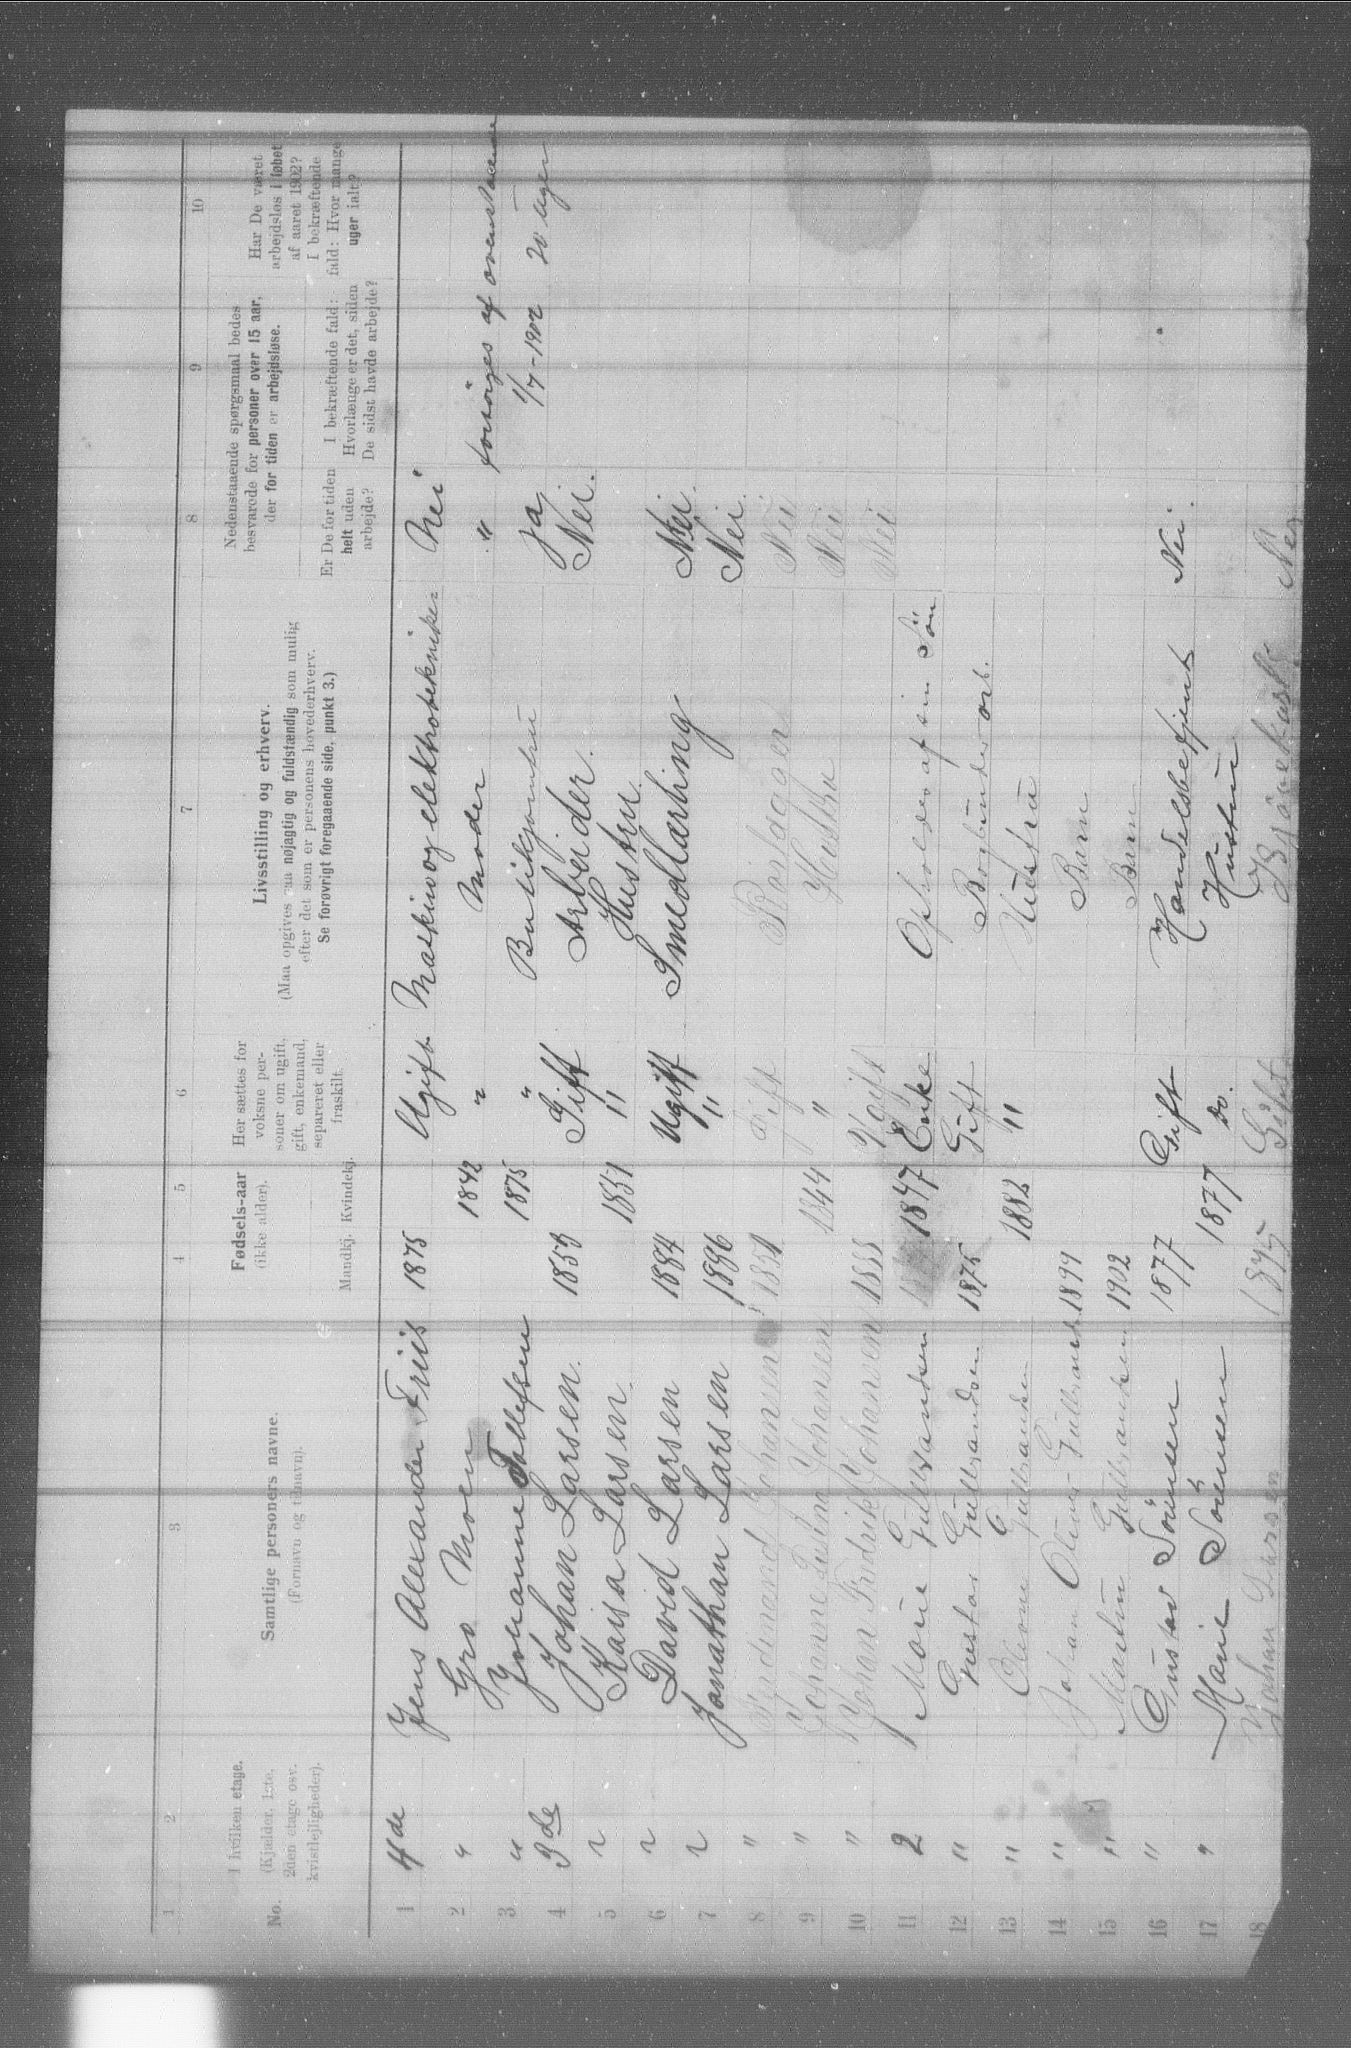 1 2 3 4 5 6 7 8 9 10
No. I hvilken etage. (Kjælder, 1ste, 2den etage osv. kvistlejligheder).
Samtlige personers navne. (Fornavn og tilnavn).
Fødsels-aar (ikke alder). Mandkj. Kvindekj.
Her sættes for voksne personer om ugift, gift, enkemand, separeret eller fraskilt.
Livsstilling og erhverv. (Maa opgives saa nøjagtig og fuldstændig som mulig efter det som er personens hovederhverv. Se forøvrigt foregaaende side, punkt 3.)
Nedenstaaende spørgsmaal bedes besvarede for personer over 15 aar, der for tiden er arbejdsløse.
Er De for tiden helt uden arbejde?
I bekræftende fald: Hvorlænge er det, siden De sidst havde arbejde?
Har De været arbejdsløs i løbet af aaret 1902? I bekræftende fald: Hvor mange uger ialt?
1 4de Jens Alexander Friis 1875 Ugift Maskin og elektrotekniker Nei
2 " Gro Moen 1842 " Moder " forsørges af ovenstaaende
3 " Johanne Tollefsen 1875 " Butikjomfru Ja 1/7-1902 20 Uger
4 3de Johan Larsen. 1853 Gift Arbeider. Nei.
5 " Kaisa Larsen. 1857 " Hustru.
6 " David Larsen 1884 Ugift Smedlærling Nei.
7 " Jonathan Larsen 1886 " Nei.
8 " Ferdinand Johansen 1851 Gift Nei
9 " Johanne Johansen 1844 " Hustru Nei
10 " Johan Fredrik Johansen 1888 Ugift Nei
11 2 Marie Gulbrandsen 1847 Enke Opholdes af sin Søn
12 " Gustav Gulbrandsen 1875 Gift
13 " Gulbrandsen 1882 " Hustru
14 " Johan Gulbrands. 1899 Barn
15 " Martin Gulbrandsen 1902 Barn
16 " Gustav Sørensen 1877 Gift Handelsbetjent Nei.
17 " Marie Sørensen 1877 Do. Hustru
18 Johan Larsen Gift Nei